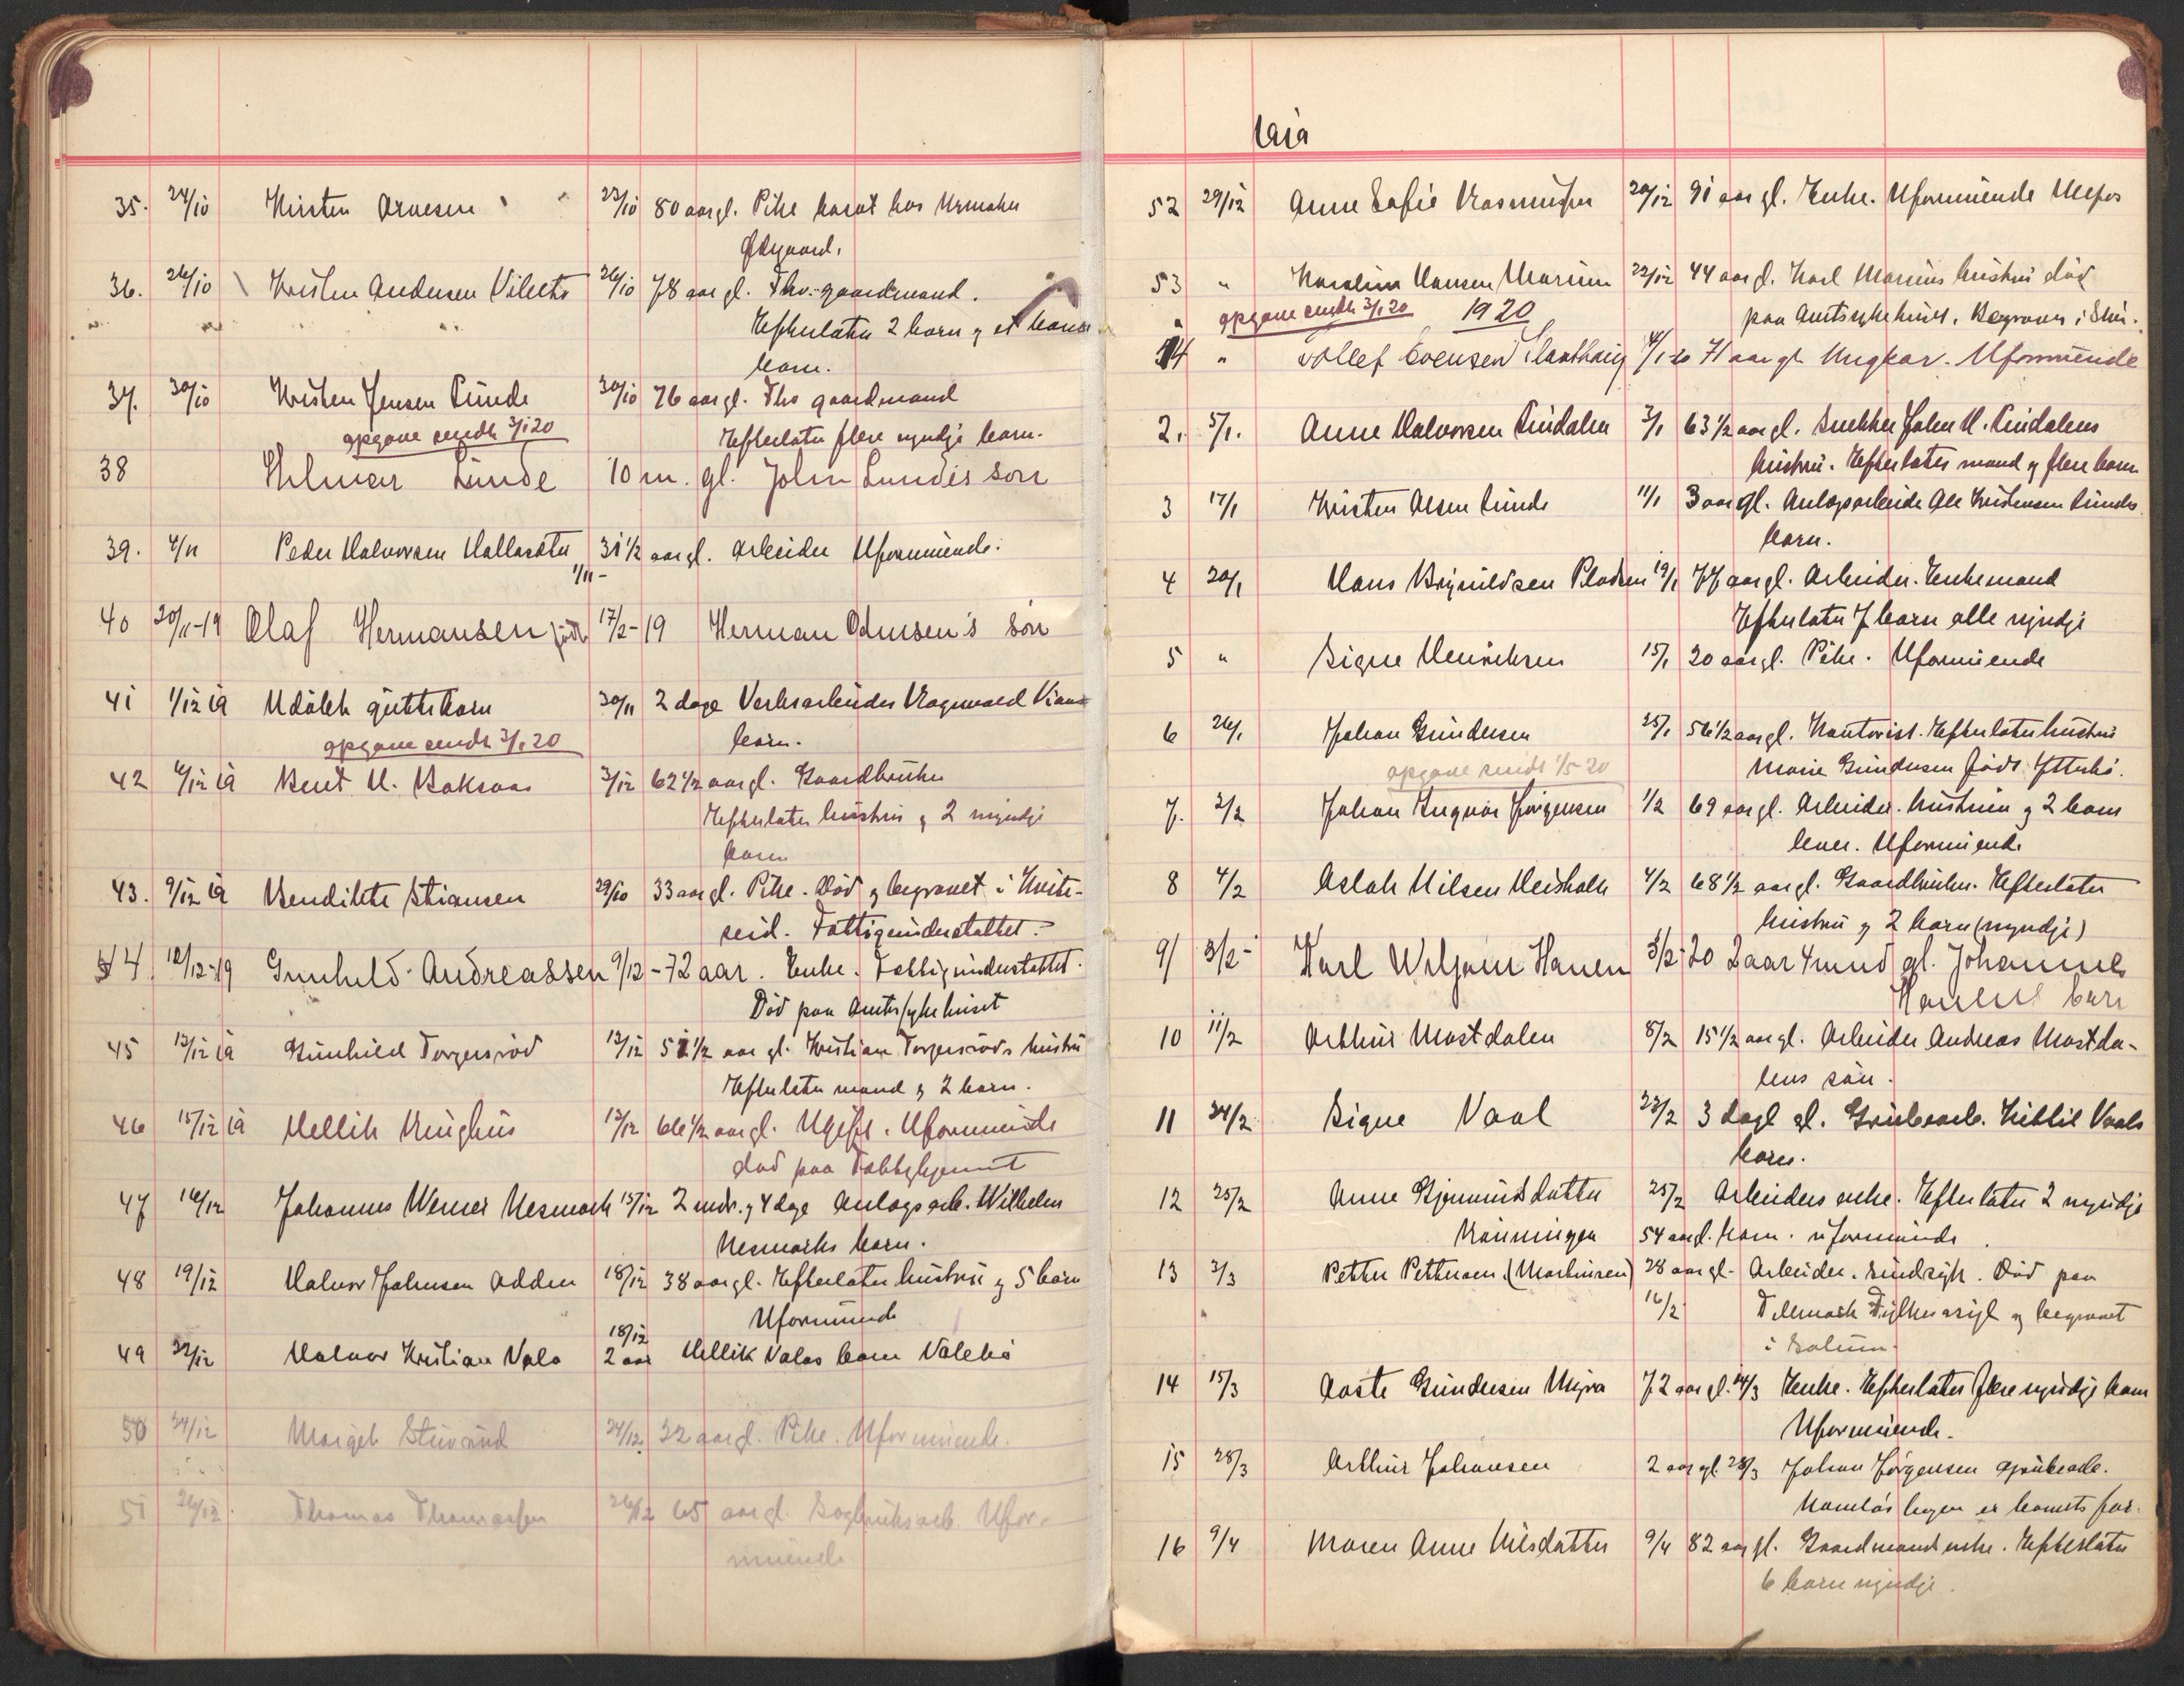 35. 24/10 Kirsten Arnesen 23/10 80 aar gl. Pike boat hos Urmaker
Ødegaard.
36. 26/10 Kristen Andersen 26/10 78 aar gl. Fhv. gaardmand.
Efterlater 2 barn og et barne
barn.
37. 30/10 Kristen Jensen Lunde 30/10 76 aar gl. Fhv gaardmand
opgave sendt 3/1 20 Efterlater flere myndje barn.
38 Hilmar Lunde 10 m. gl. John Lundes søn
39. 4/11 Peder Halvorsen 31 1/2 aar gl. Arbeider Uformuende.
1/11-
40 20/11-19 Olaf Hermansen født 17/2-19 Herman Odmsen's søn
41 1/12 19 Udøbt guttebarn 30/11 2 dage Verksarbeider Ragnvald
opgave sendt 3/1 20 barn.
42 6/12 19 Bent H. Baksaas 3/12 62 1/2 aar gl. Gaardbruker
Efterlater hustru og 2 myndje
barn
43. 9/12 19 Bendikte Stiansen 29/10 33 aar gl. Pike. Død og begravet i Kvite-
seid. Fattigunderstøttet.
44. 12/12-19 Gunhild Andreassen 9/12 - 72 aar. Enke. Fattigunderstøttet.
Død paa Amtssykehuset
45 13/12 19 Gunhild Torgersrød 12/12 51 1/2 aar gl. Kristian Torgersrøds hustru
Efterlater mand og 2 barn.
46 15/12 19 Kellik Ringhus 12/12 66 1/2 aar gl. Ugift. Uformuende
død paa Fattighjemmet
47 16/12 Johannes Werner Nesmark 15/12 2 mdr. og 4 dage Anlægsarb. Wilhelm
Nesmarks barn.
48 19/12 Halvor Johnsen Odden 18/12 38 aar gl. Efterlater hustru og 5 barn
Uformuende
18/12
49 22/12 Halvor Kristian Vala 2 aar Kellik Valas barn Valebø
50 24/12 Margit Stuvrud 24/12 22 aar gl. Pike. Uformuende.
51 26/12. Thomas Thomassen 26/12 65 aar gl. Sagbruksarb. Ufor-
muende
Aar
52 29/12 Anne Sofie Rasmussen 20/12 91 aar gl. Enke. Uformuende Ulefos
53 " Karoline Hansen Marum 22/12 44 aar gl. Karl Marums hustru død
" opgave sendt 3/1 20 1920 paa Amtssykehuset. Begraves i Skien.
1 " Tollef Evensen 4/1 20 71 aar gl. Ungkar. Uformuende
2. 5/1. Anne Halvorsen Lindalen 3/1 63 1/2 aar gl. Snekker John H. Lindalens
hustru. Efterlater mand og flere barn
3 17/1 Kristen Olsen Lunde 11/1 3 aar gl. Anlægsarbeider Ole Kristensen Lundes
barn.
4 20/1 Hans Brynildsen Pladsen 19/1 77 aar gl. Arbeider. Enkemand
Efterlater 7 barn alle myndje
5 " Signe Henriksen 15/1 20 aar gl. Pike. Uformuende
6 26/1 Johan Gundersen 25/1 56 1/2 aar gl. Kontorist. Efterlater hustru
opgave sendt 1/5-20 Marie Gundersen født Ytterbø.
7. 2/2 Johan Ingvar Jørgensen 1/2 69 aar gl. Arbeider. hustruen og 2 barn
lever. Uformuende
8 4/2 Aslak Nilsen Heisholt 4/2 68 1/2 aar gl. Gaardbruker. Efterlater
hustru og 2 barn (myndje)
9/ 3/2- Karl Wiljam Hanen 3/2-20 2 aar 4 mnd gl. Johannes
Hanens barn
10 11/2 Arthur Mostdalen 8/2 15 1/2 aar gl. Arbeider Andreas Mostda-
lens søn.
11 24/2 Signe Vaal 23/2 3 dage gl. Grubearb. Kittil Vaals
barn.
12 25/2 Anne Gjermundsdatter 25/2 Arbeiders enke. Efterlater 2 myndje
Rønningen 54 aar gl. barn. uformuende.
13 2/3 Petter Pettersen (Marhuren) 28 aar gl. Arbeider. sindssyk. Død paa
16/2 Telemark Fylkesasyl og begravet
i Solum.
14 15/3 Aaste Gundersen Myra 72 aar gl. 14/3 Enke. Efterlater flere myndje barn
Uformuende.
15 28/3 Arthur Johansen 2 aar gl. 28/3 Johan Jørgensen grubearb.
Namløs hagen er barnets far.
16 9/4 Maren Anne Nilsdatter 9/4 82 aar gl. Gaardmandsenke. Efterlater
6 barn myndje.